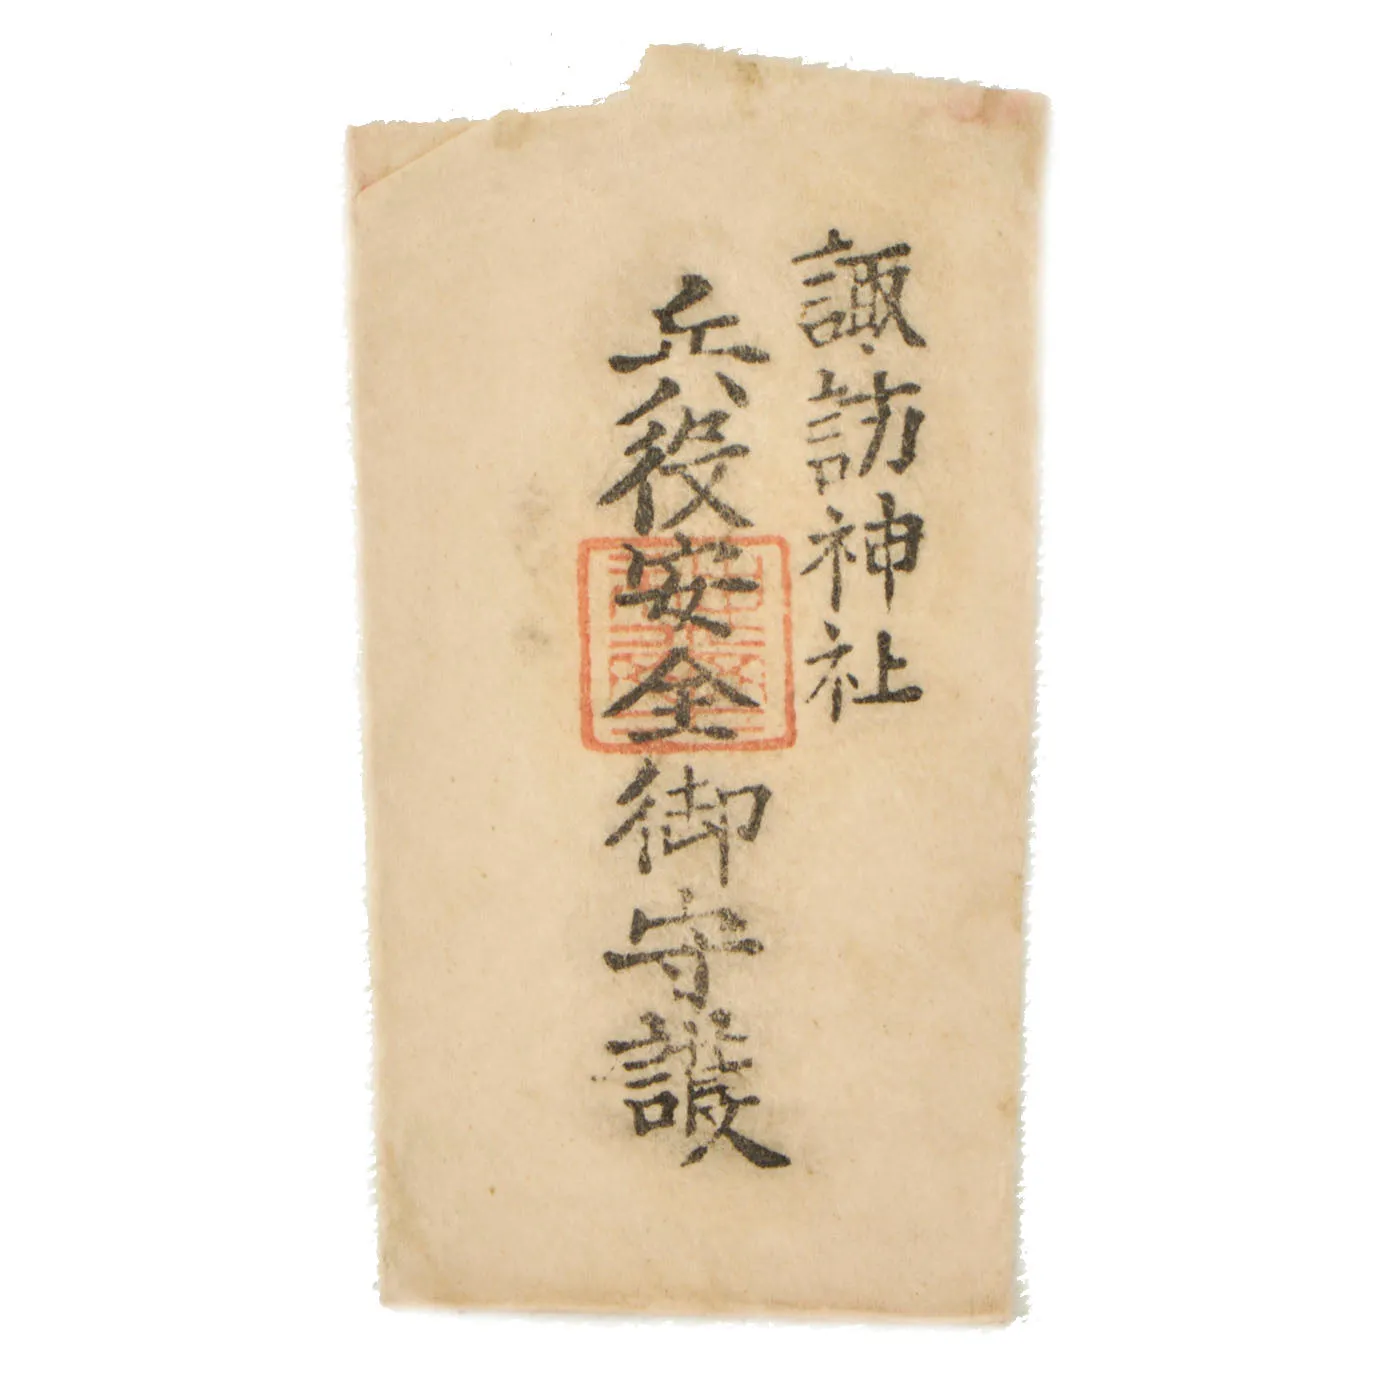 諏訪神社
兵役安全御守護